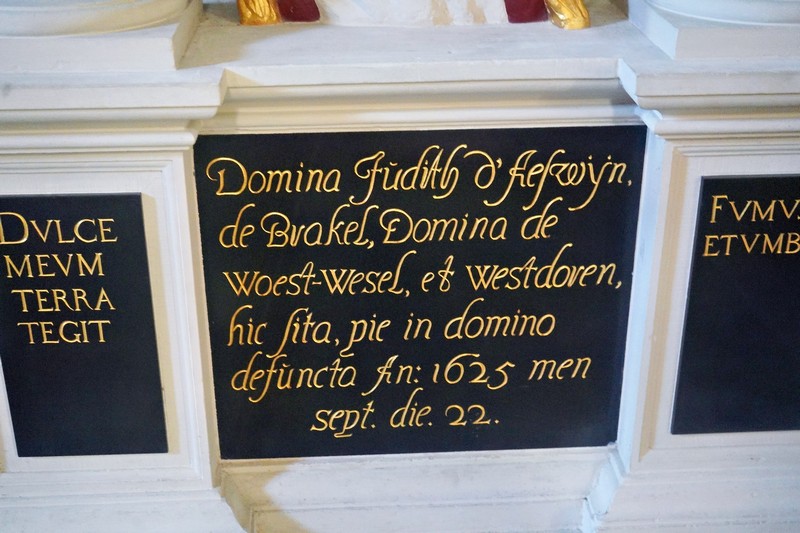 DVLCE
MEVM
TERRA
TEGIT
Domina Jŭdith d'Aeſwijn,
de Brakel, Domina de
Woest-Wesel, et Westdoren,
hic ſita, pie in domino
defŭncta An: 1625 men
sept. die. 22.
FVMVS
ETVMB